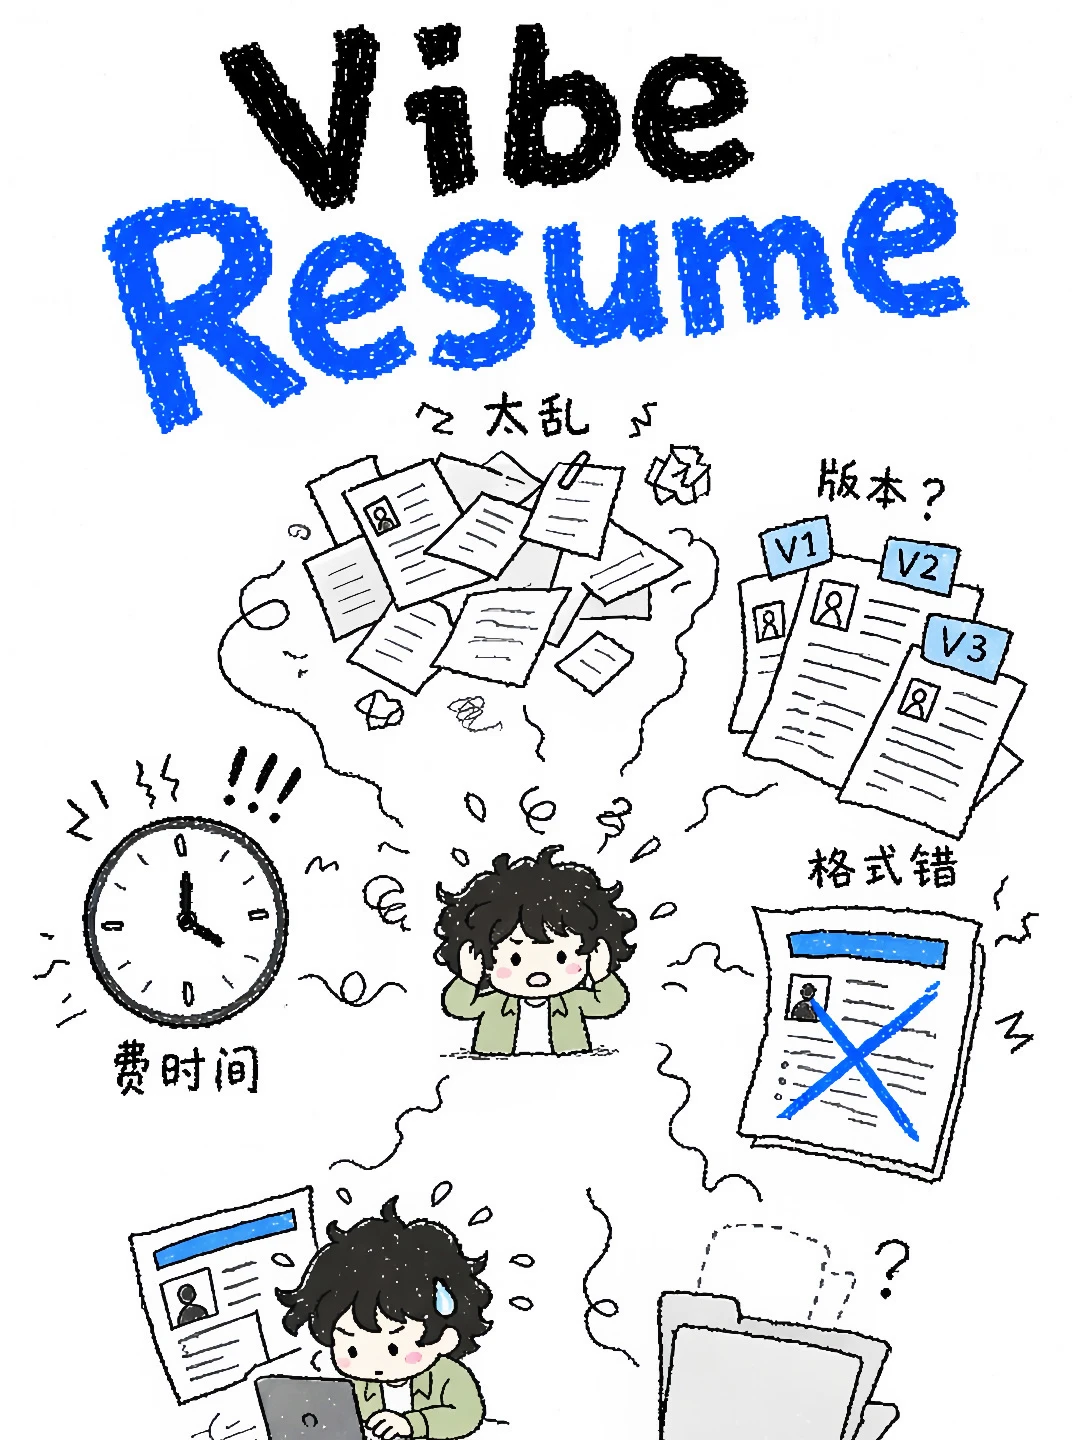 Vibe
Resume
太乱
版本?
V1
V2
V3
!!!
格式错
费时间
?